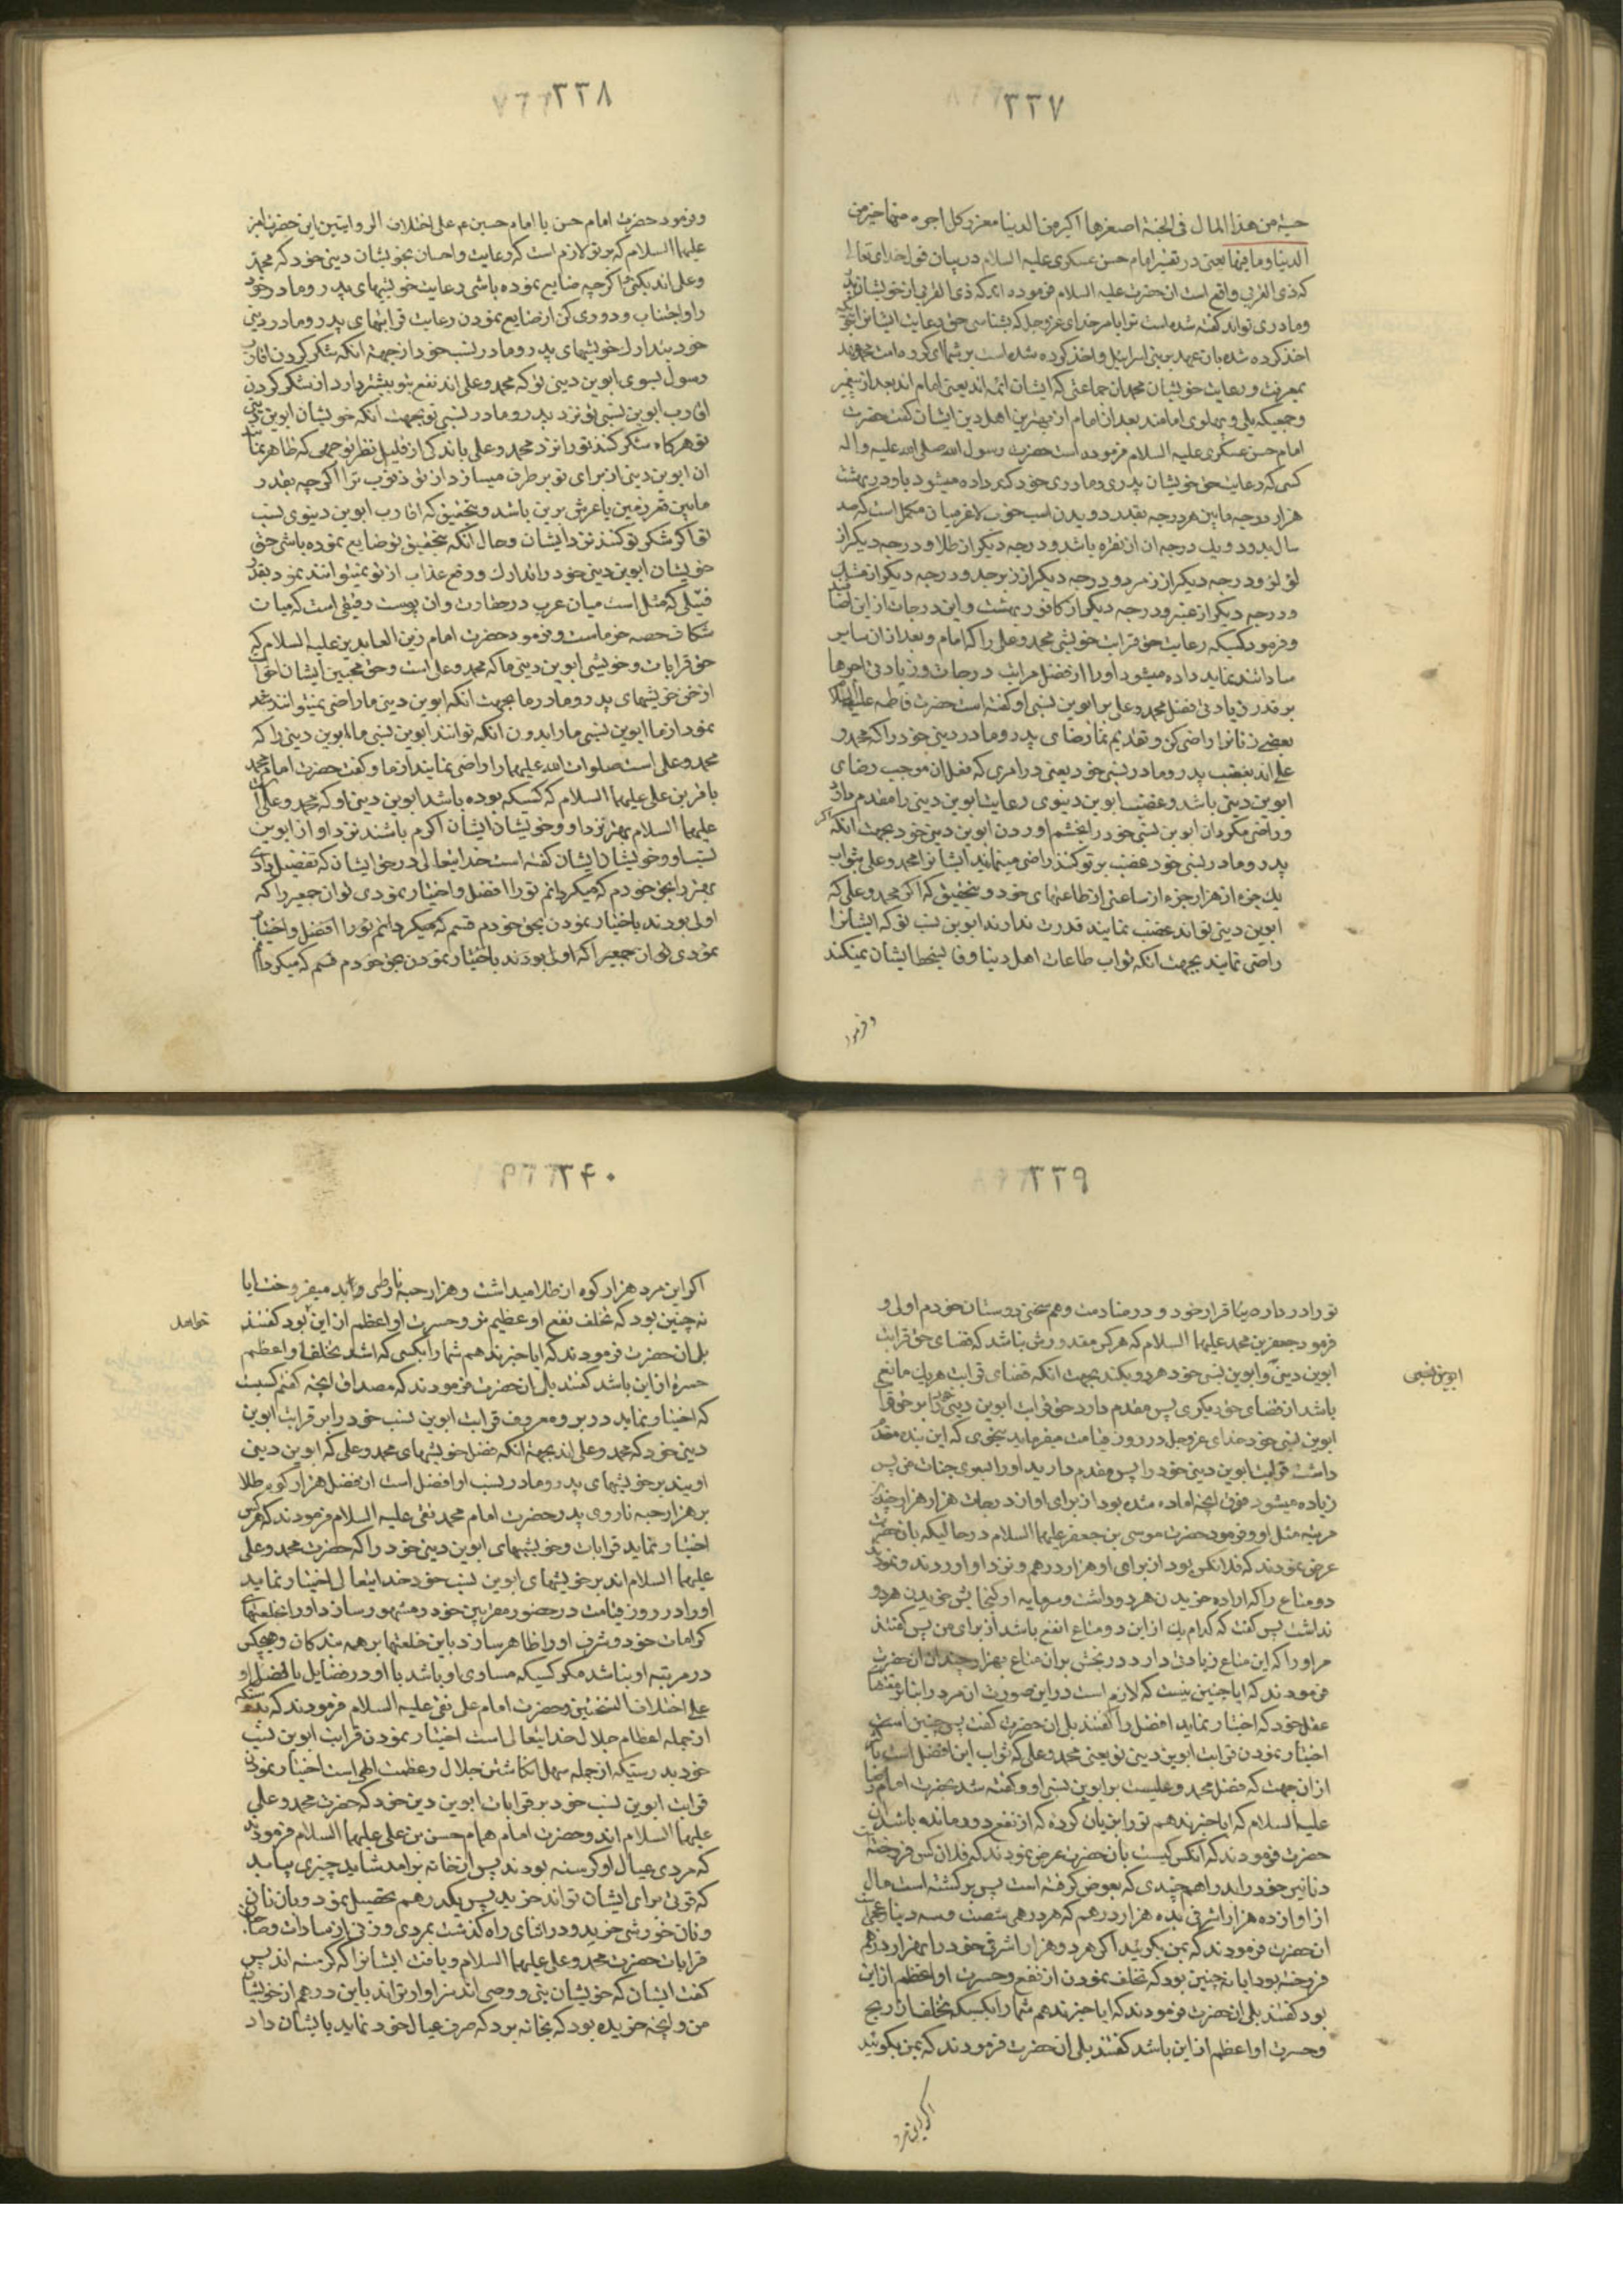 ۳۳۷
حبة من هذا المال فی الجنة اصغرها اکبر من الدنیا مغرز کل اجره منها خیر من
الدنیا وما فیها یعنی در تفسیر امام حسن عسکری علیه السلام در بیان قول خدای تعالی
که ذی القربی واقع است ان حضرت علیه السلام فرموده اند که ذی القربی از خویشان پدر
ومادری تواند کفته شده است ترا بامر خدای عزوجل که بشناسی حق رعایت ایشانرا
اخذ کرده شده بان عهد بر بنی اسرائیل و اخذ کرده شده است بر شما ای کروه امت محمد
بمعرفت ورعایت خویشان محمد ان جماعتی که ایشان ائمه اند یعنی امام اند بعد از پیغمبر
وجمعیکه پلی و پهلوی امامند بعد از امام از بهترین اهل دین ایشان کفت حضرت
امام حسن عسکری علیه السلام فرموده است حضرت رسول الله صلی الله علیه واله
کسی که رعایت حق خویشان پدری ومادری خود کند داده میشود باو در بهشت
هزار درجه مابین هر درجه بقدر دویدن اسب خوب لاغر میان مکمل است که صد
سال بدود و یک درجه ان از نقره باشد ودرجه دیکر از طلا ودرجه دیکر از
لؤلؤ ودرجه دیکر از زمرد ودرجه دیکر از زبرجد ودرجه دیکر از مشک
ودرجه دیکر از عنبر ودرجه دیکر از کافور بهشت واین درجات از این
وفرمود کسیکه رعایت حق قرابت خویشی محمد وعلی را که امام وبعد از ان سایر
ساداتند نماید داده میشود اورا از فضل مراتب درجات وزیادتی اجرها
بر قدر زیادتی فضل محمد وعلی بر ابوین نسبی او کفته است حضرت فاطمه علیها
بعضی زنانرا راضی کن وتقدیم نما رضای پدر ومادر دینی خود را که محمد و
علی اند بغضب پدر ومادر نسبی خود یعنی در امری که فعل ان موجب رضای
ابوین دینی باشد وغضب ابوین دنیوی رعایت ابوین دینی را مقدم دار
وراضی مکردان ابوین نسبی خود را بخشم اوردن ابوین دینی خود بجهت انکه اکر
پدر ومادر نسبی خود غضب بر تو کنند راضی مینمایند ایشانرا محمد وعلی بثواب
یک جزء از هزار جزء از ساعتی از طاعتهای خود وبتحقیق که اکر محمد وعلی که
ابوین دینی تواند غضب نمایند قدرت ندارند ابوین نسب تو که ایشانرا
راضی نمایند بجهت انکه ثواب طاعات اهل دنیا وفا بسخط ایشان نمیکند
وفرمود
۳۳۸
وفرمود حضرت امام حسن یا امام حسین ع علی اختلاف الروایتین این حضرت امیر
علیهما السلام که بر تو لازم است که رعایت واحسان بخویشان دینی خود که محمد
وعلی اند بکنی واکرچه ضایع نموده باشی رعایت خویشهای پدر ومادر خود
را واجتناب ودوری کن از ضایع نمودن رعایت قرابتهای پدر ومادر دینی
خود بتدارک خویشهای پدر ومادر نسب خود از جهة انکه شکر کردن اقارب
رسول بسوی ابوین دینی تو که محمد وعلی اند نفع بتو بیشتر دارد از شکر کردن
اقارب ابوین نسبی تو نزد پدر ومادر نسبی تو بجهت انکه خویشان ابوین دینی
تو هرکاه شکر کنند تورا نزد محمد وعلی باندکی از قلیل نظر ترحمی که ظاهر نما
ان ابوین دینی از برای تو بر طرف میسازد از تو ذنوب ترا اکرچه بقدر
مابین قعر زمین یا عرش برین باشد وبتحقیق که اقارب ابوین دنیوی نسب
تو اکر شکر تو کنند نزد ایشان وحال انکه بتحقیق تو ضایع نموده باشی حق
خویشان ابوین دینی خود را تدارک ودفع عذاب از تو نمیتوانند نمود بقدر
فتیلی که مثل است میان عرب در حقارت وان پوست رقیقی است که میان
شکاف حصه خرماست وفرمود حضرت امام زین العابدین علیه السلام که
حق قرابات وخویشی ابوین دینی ما که محمد وعلی است وحق محبین ایشان
از حق خویشهای پدر ومادر ما بجهت انکه ابوین دینی ما راضی نمیتوانند
نمود از ما ابوین نسبی مارا بدون انکه توانند ابوین نسبی ما ابوین دینی را که
محمد وعلی است صلوات الله علیهما را راضی نمایند از ما وکفت حضرت امام محمد
باقر بن علی علیهما السلام که کسیکه بوده باشد ابوین دینی او که محمد وعلی
علیهما السلام بهتر نزد او وخویشان ایشان اکرم باشند نزد او از ابوین
نسب او وخویشان ایشان کفته است خدایتعالی در حق ایشان که تفضیل دادی
بهتر را بحق خودم که میکردانم تورا افضل واختیار نمودی توان جمعیرا که
اولی بودند باختیار نمودن بحق خودم قسم که میکردانم تورا افضل واختیار
نمودی توان جمعیرا که اولی بودند باختیار نمودن بحق خودم قسم که میکردانم
۳۳۹
تورا در دار ضیا قرار خود ودر منادمت وهم سخنی دوستان خودم اولی و
فرمود جعفر بن محمد علیهما السلام که هر کس مقدورش نباشد که قضای حق قرابت
ابوین دینی وابوین نسبی خود هر دو بکند بجهت انکه قضای قرابت هر یک مانع
ابوین نسبی
باشد از قضای حق دیکری پس مقدم دارد حق قرابت ابوین دینی خود را بر حق
ابوین نسبی خود خدای عزوجل در روز قیامت میفرماید بنحوی که این بنده مقدم
داشت قرابت ابوین دینی خود را پس مقدم دارید اورا بسوی جنات من پس
زیاده میشود فوق انچه اماده شده بود از برای او از درجات هزار هزار چندان
مرتبه مثل او وفرمود حضرت موسی بن جعفر علیهما السلام در حالیکه بان حضرت
عرض نمودند که فلانکس بود از برای او هزار درهم ونزد او اوردند
دو متاع را که اراده خریدن هر دو داشت وسرمایه او کنجایش خریدن هر دو
نداشت پس کفت که کدام یک از این دو متاع انفع باشد از برای من پس کفتند
مر او را که این متاع زیادتی دارد در نفعش بر ان متاع بهزار چندان ان حضرت
فرمودند که ایا چنین نیست که لازم است در این صورت ان مرد را
عقل خود که اختیار نماید افضل را کفتند بلی ان حضرت کفت پس چنین است
اختیار نمودن قرابت ابوین دینی تو یعنی محمد وعلی که ثواب این افضل است
از ان جهت که فضل محمد وعلیست بر ابوین نسبی او وکفته شد بحضرت امام رضا
علیه السلام که ایا خبر ندهم تورا بزیان کرده که از نفع دور مانده باشد ان
حضرت فرمودند که انکس کیست بان حضرت عرض نمودند که فلان کس فروخت
دنانیر خود را بدراهم چندی که بعوض کرفته است پس برکشته است مال
از او از ده هزار اشرفی بده هزار درهم که هر درهمی شصت وسه دینار
ان حضرت فرمودند که بمن بکوئید اکر هر دو هزار اشرفی خود را بهزار درهم
فروخته بود ایا نه چنین بود که تخلف نمودن از نفع وحسرت او اعظم از این
بود کفتند بلی ان حضرت فرمودند که ایا خبر ندهم شما را بکسیکه تخلف از ربح
وحسرت او اعظم از این باشد کفتند بلی ان حضرت فرمودند که بمن بکوئید
اکر این مرد
۳۴۰
اکر این مرد هزار کوه از طلا میداشت وهزار حبه ناروی میفروخت ایا
نه چنین بود که تخلف نفع او عظیم تر وحسرت او اعظم از این بود کفتند
بلی ان حضرت فرمودند که ایا خبر ندهم شما را بکسی که اشد تخلفا واعظم
حسرة از این باشد کفتند بلی ان حضرت فرمودند که مصداق انچه کفتم کسیست
که اختیار نماید در بر ومعروف قرابت ابوین نسب خود را بر قرابت ابوین
دینی خود که محمد وعلی اند بجهة انکه فضل خویشهای محمد وعلی که ابوین دینی
اویند بر خویشهای پدر ومادر نسب او افضل است از فضل هزار کوه طلا
بر هزار حبه ناروی پدر حضرت امام محمد تقی علیه السلام فرمودند که هر کس
اختیار نماید قرابات وخویشهای ابوین دینی خود را که حضرت محمد وعلی
علیهما السلام اند بر خویشهای ابوین نسب خود خدایتعالی اختیار نماید
اورا در روز قیامت در حضور مقربین خود ومشهور سازد اورا بخلعتهای
کرامات خود وشرف اورا ظاهر سازد باین خلعتها بر همه بندکان وهیچکس
در مرتبه او نباشد مکر کسیکه مساوی او باشد با او در فضایل یا افضل از او
علی اختلاف النسختین وحضرت امام علی نقی علیه السلام فرمودند که
از جمله اعظام جلال خدایتعالی است اختیار نمودن قرابت ابوین نسب
خود بدرستیکه از جمله سهل انکاشتن جلال وعظمت الهی است اختیار نمودن
قرابت ابوین نسب خود بر قرابات ابوین دین خود که حضرت محمد وعلی
علیهما السلام اند وحضرت امام همام حسن بن علی علیهما السلام فرمودند
که مردی عیال او کرسنه بودند پس از خانه برامد شاید چیزی بیابد
که قوتی برای ایشان تواند خرید پس یکدرهم تحصیل نمود وبان نان
ونان خورشی خرید ودر اثنای راه کذشت بمردی وزنی از سادات
قرابات حضرت محمد وعلی علیهما السلام ویافت ایشانرا که کرسنه اند پس
کفت ایشان که خویشان نبی ووصی اند سزاوارتراند باین درهم از خویشان
من وانچه خریده بود که بخانه برد که صرف عیال خود نماید بایشان داد